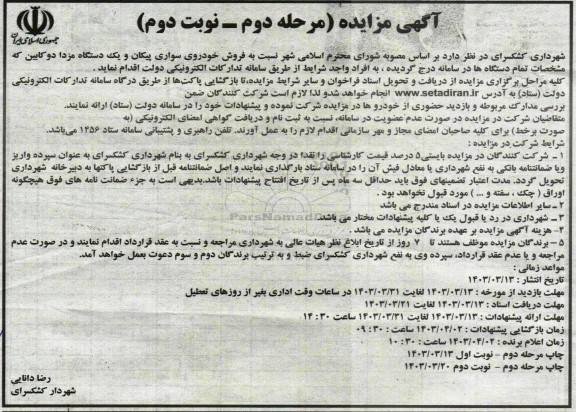 آگهی مزایده (مرحله دوم ــ نوبت دوم)
شهرداری کشکسرای در نظر دارد بر اساس مصوبه شورای محترم اسلامی شهر نسبت به فروش خودروی سواری پیکان و یک دستگاه مزدا دوکابین که
مشخصات تمام دستگاه ها در سامانه درج گردیده ، به افراد واجد شرایط از طریق سامانه تدارکات الکترونیکی دولت اقدام نماید .
کلیه مراحل برگزاری مزایده از دریافت و تحویل اسناد فراخوان و سایر شرایط مزایده،تا بازگشایی پاکت‌ها از طریق درگاه سامانه تدارکات الکترونیکی
دولت (ستاد) به آدرس www.setadiran.ir انجام خواهد شدو لذا لازم است شرکت کنندگان ضمن
بررسی مدارک مربوطه و بازدید حضوری از خودرو ها در مزایده شرکت نموده و پیشنهادات خود را در سامانه دولت (ستاد) ارائه نمایند.
متقاضیان شرکت در مزایده در صورت عدم عضویت در سامانه، نسبت به ثبت نام و دریافت گواهی امضای الکترونیکی (به
صورت برخط) برای کلیه صاحبان امضای مجاز و مهر سازمانی اقدام لازم را به عمل آورند. تلفن راهبری و پشتیبانی سامانه ستاد ۱۴۵۶ می‌باشد.
شرایط شرکت در مزایده :
۱ ـ شرکت کنندگان در مزایده بایستی۵ درصد قیمت کارشناسی را نقدا در وجه شهرداری کشکسرای به بنام شهرداری کشکسرای به عنوان سپرده واریز
ویا ضمانتنامه بانکی به نفع شهرداری یا معادل فیش آن را در سامانه ستاد بارگذاری نمایند و اصل ضمانتنامه قبل از بازگشایی پاکتها به دبیرخانه شهرداری
تحویل گردد. مدت اعتبار تضمینهای فوق باید حداقل سه ماه پس از تاریخ افتتاح پیشنهادات باشد.بدیهی است به جزء ضمانت نامه های فوق هیچگونه
اوراق ( چک ، سفته و ... ) مورد قبول نخواهد بود .
۲ ـ سایر اطلاعات مزایده در اسناد مندرج می باشد
۳ ـ شهرداری در رد یا قبول یک یا کلیه پیشنهادات مختار می باشد.
۴ - هزینه آگهی مزایده بر عهده برندگان مزایده می باشد .
۵ – برندگان مزایده موظف هستند تا ۷ روز از تاریخ ابلاغ نظر هیات عالی به شهرداری مراجعه و نسبت به عقد قرارداد اقدام نمایند و در صورت عدم
مراجعه و یا عدم عقد قرارداد، سپرده وی به نفع شهرداری کشکسرای ضبط و به ترتیب برندگان دوم و سوم دعوت بعمل خواهد آمد.
مواعد زمانی :
تاریخ انتشار : ۱۴۰۳/۰۳/۱۳
مهلت بازدید از مورخه : ۱۴۰۳/۰۳/۱۳ لغایت ۱۴۰۳/۰۳/۳۱ در ساعات وقت اداری بغیر از روزهای تعطیل
مهلت دریافت اسناد : ۱۴۰۳/۰۳/۱۳ لغایت ۱۴۰۳/۰۳/۲۱
مهلت ارائه پیشنهادات : ۱۴۰۳/۰۳/۱۳ لغایت ۱۴۰۳/۰۳/۳۱ ساعت ۱۴:۳۰
زمان بازگشایی پیشنهادات : ۱۴۰۳/۰۴/۰۲ ساعت : ۰۹:۳۰
زمان اعلام برنده : ۱۴۰۳/۰۴/۰۲ ساعت : ۱۰:۳۰
چاپ مرحله دوم - نوبت اول ۱۴۰۳/۰۳/۱۳
چاپ مرحله دوم - نوبت دوم ۱۴۰۳/۰۳/۲۰
رضا دانایی
شهردار کشکسرای